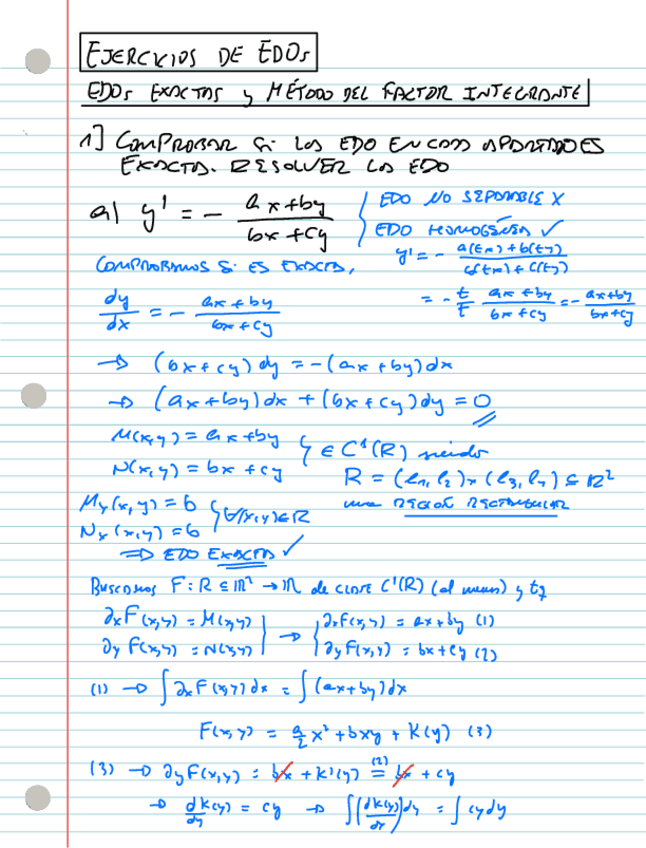 EJERCICIOS DE EDOs
EDOs EXACTAS y MÉTODO DEL FACTOR INTEGRANTE
1] COMPROBAR SI LAS EDO EN CADA APARTADO ES
EXACTA. RESOLVER LAS EDO
a) y' = - (ax+by)/(bx+cy)
EDO NO SEPARABLE X
EDO HOMOGÉNEA ✓
y' = - (a(tx)+b(ty))/(b(tx)+c(ty))
= - t/t (ax+by)/(bx+cy) = - (ax+by)/(bx+cy)
COMPROBAMOS SI ES EXACTA,
dy/dx = - (ax+by)/(bx+cy)
→ (bx+cy)dy = -(ax+by)dx
→ (ax+by)dx + (bx+cy)dy = 0
M(x,y) = ax+by
N(x,y) = bx+cy
} ∈ C¹(R) siendo
R = (l₁,l₂)×(l₃,l₄) ⊆ ℝ²
una REGIÓN RECTANGULAR
My(x,y) = b
Nx(x,y) = b
} ∀(x,y)∈R
⇒ EDO EXACTA ✓
BUSCAMOS F: R ⊆ ℝ² → ℝ de CLASE C¹(R) (al menos) y tq
∂xF(x,y) = M(x,y)
∂yF(x,y) = N(x,y)
} → { ∂xF(x,y) = ax+by (1)
∂yF(x,y) = bx+cy (2)
(1) → ∫∂xF(x,y)dx = ∫(ax+by)dx
F(x,y) = a/2 x² + bxy + K(y) (3)
(3) → ∂yF(x,y) = bx + K'(y) (2)= bx + cy
→ dK(y)/dy = cy → ∫(dK(y)/dy)dy = ∫cydy